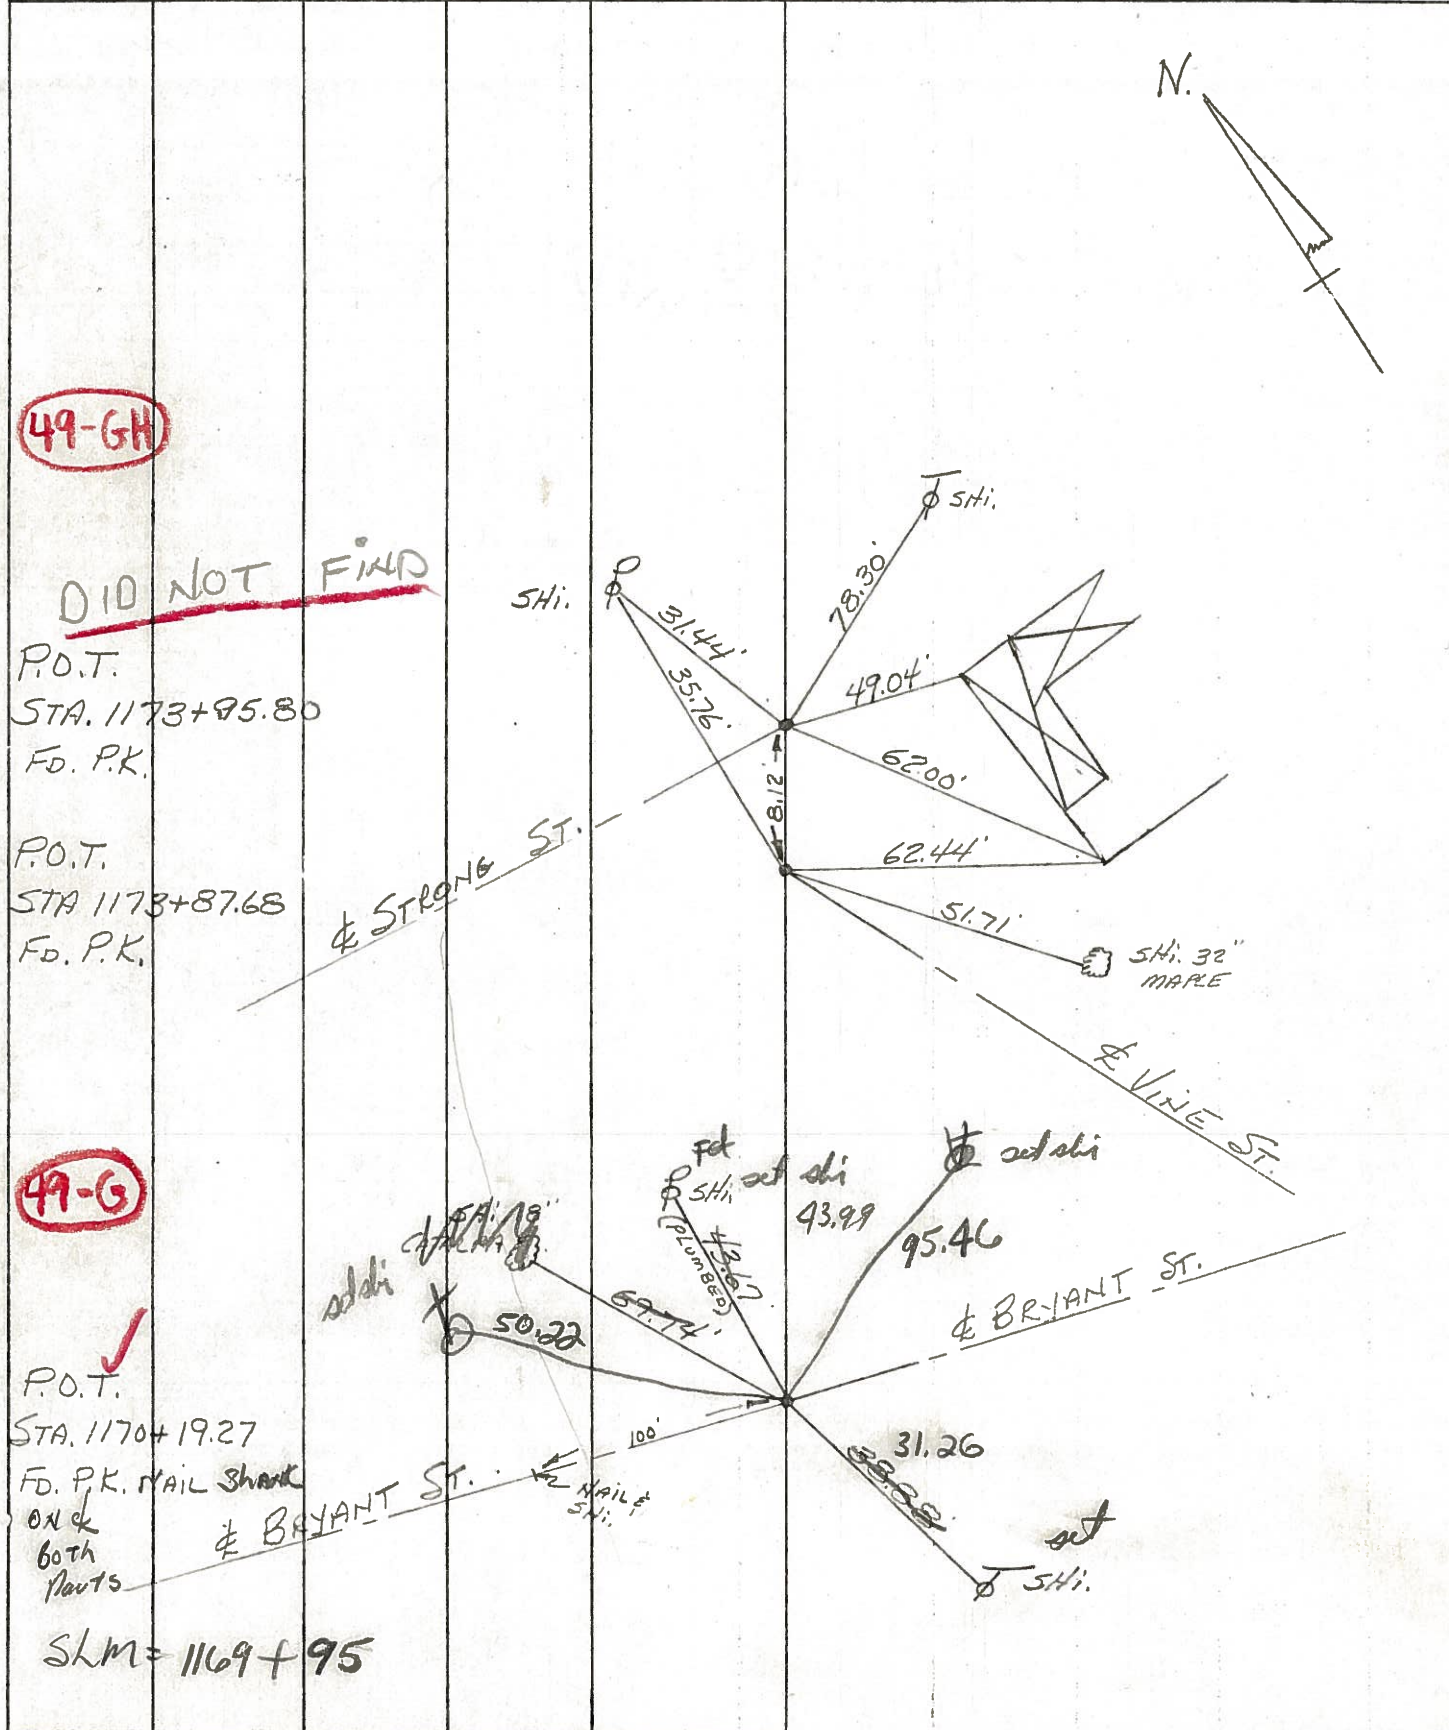 N.
49-GH
DID NOT FIND
P.O.T.
STA. 1173+95.80
FD. P.K.
P.O.T.
STA 1173+87.68
FD. P.K.
SHI.
SHI.
31.44'
35.76'
78.30'
49.04'
62.00'
8.12'
62.44'
51.71'
SHI. 32"
MAPLE
℄ STRONG ST.
℄ VINE ST.
49-G
P.O.T.
STA. 1170+19.27
FD. P.K. NAIL Shank
on ck
both
Nauts
SLM = 1169+95
Fd
SHI. set shi
(PLUMBED)
43.67
43.99
set shi
95.46
set shi
50.22
69.74'
℄ BRYANT ST.
100'
NAIL &
SHI.
℄ BRYANT ST.
31.26
set
SHI.